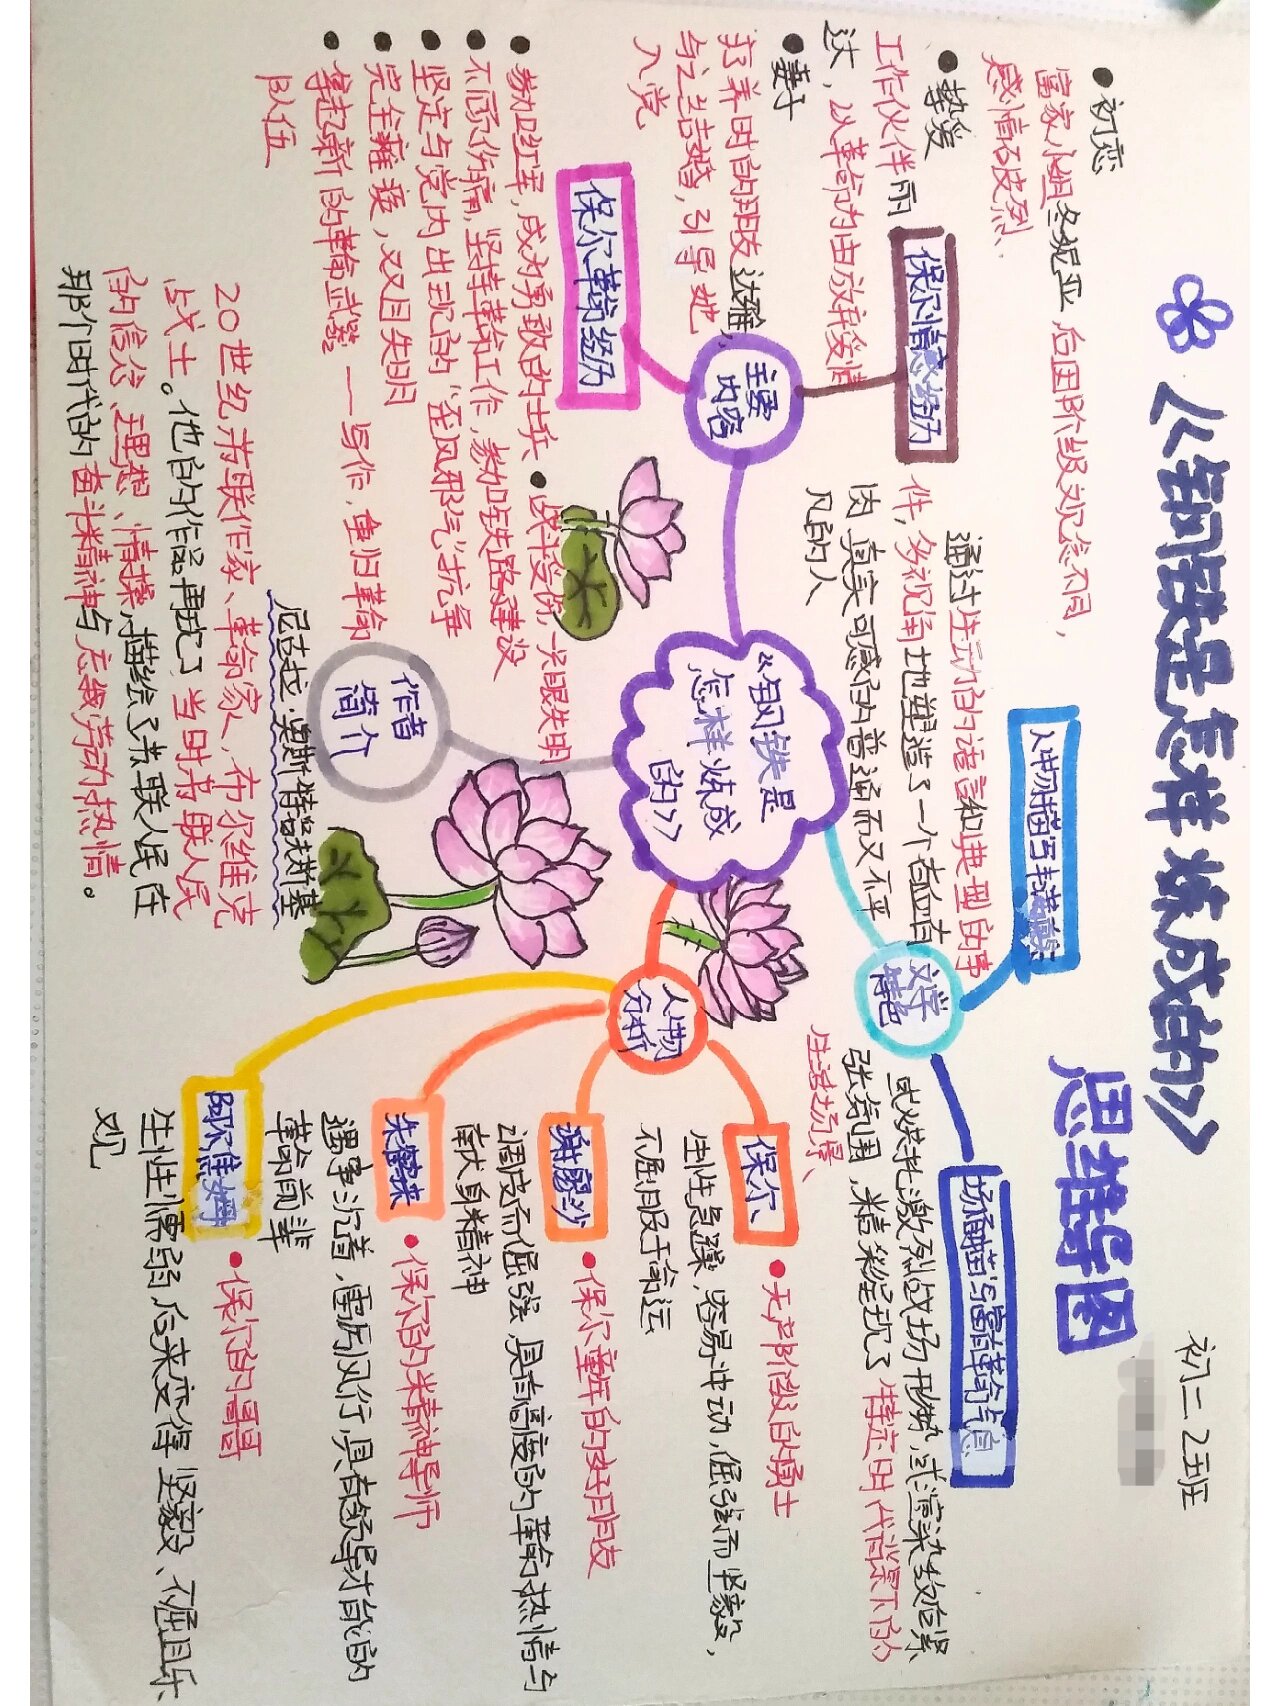 《钢铁是怎样炼成的》
思维导图
初二 2班
《钢铁是
怎样炼成
的》
主要
内容
保尔情感经历
●初恋
富家小姐冬妮亚 后因阶级观念不同,
感情破裂、
●挚爱
工作伙伴丽
达, 以革命为由放弃爱情
●妻子
疗养时的朋友达雅,
与之结婚, 引导她
入党
保尔革命经历
●参加红军, 成为勇敢的士兵 ●战斗受伤, 一只眼失明
●不顾伤痛, 坚持革命工作, 参加铁路建设
●坚定与党内出现的“歪风邪气”抗争
●完全瘫痪, 双目失明
●拿起新的革命武器 — 写作, 重归革命
队伍
作者
简介
尼古拉·奥斯特洛夫斯基
20世纪苏联作家、革命家、布尔维克
战士。他的作品再现了当时苏联人民
的信念、理想、情操, 描绘了苏联人民在
那个时代的奋斗精神与忘我劳动热情。
文学
特色
人物描写丰满真实
通过生动的语言和典型的事
件, 多视角地塑造了一个有血有
肉、真实可感的普通而又不平
凡的人
场面描写富革命气息
或烘托激烈战场形势, 或渲染敌后紧
张氛围, 精彩呈现了特定时代背景下的
生活场景、
人物
分析
保尔
●无产阶级的勇士
生性急躁, 容易冲动, 倔强而坚毅,
不屈服于命运
谢廖沙
●保尔童年的好朋友
调皮而倔强, 具有高度的革命热情与
献身精神
朱赫来
●保尔的精神导师
遇事沉着、雷厉风行, 具有领导才能的
革命前辈
阿尔焦姆
●保尔的哥哥
生性懦弱, 后来变得坚毅、不屈且乐
观